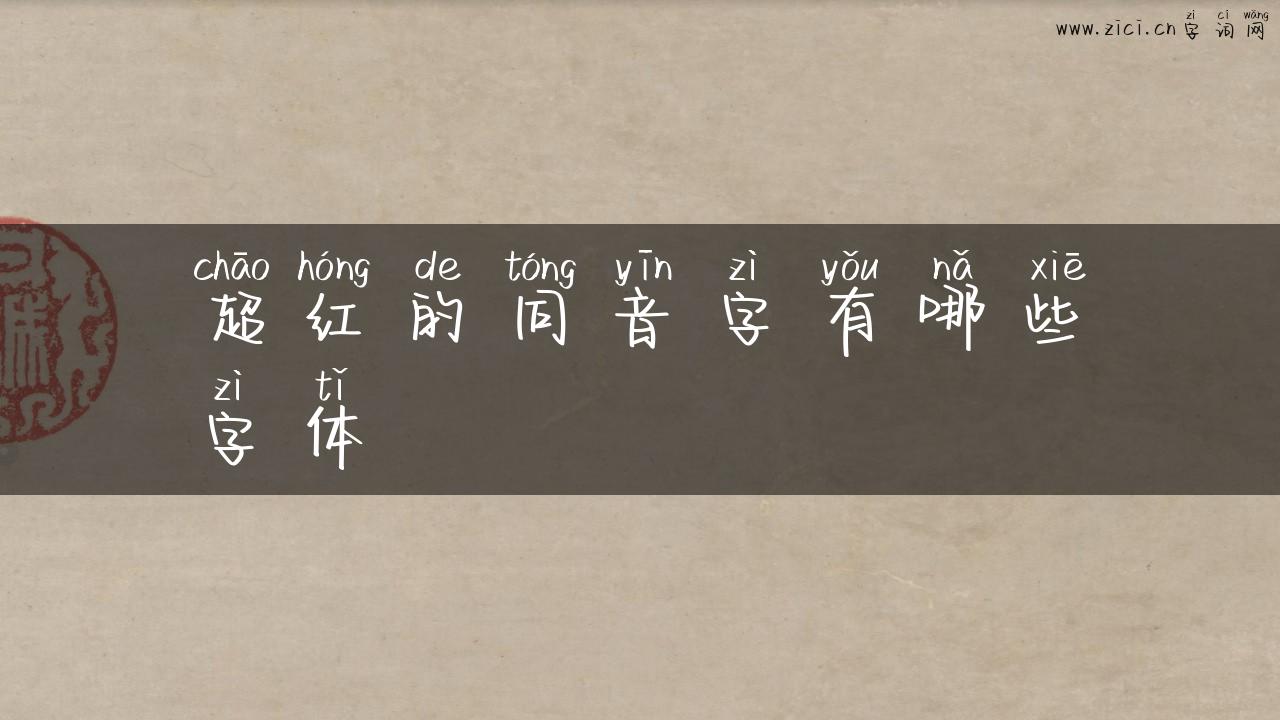 zì cí wǎng
www.zici.cn 字词网
chāo hóng de tóng yīn zì yǒu nǎ xiē
超红的同音字有哪些
zì tǐ
字体